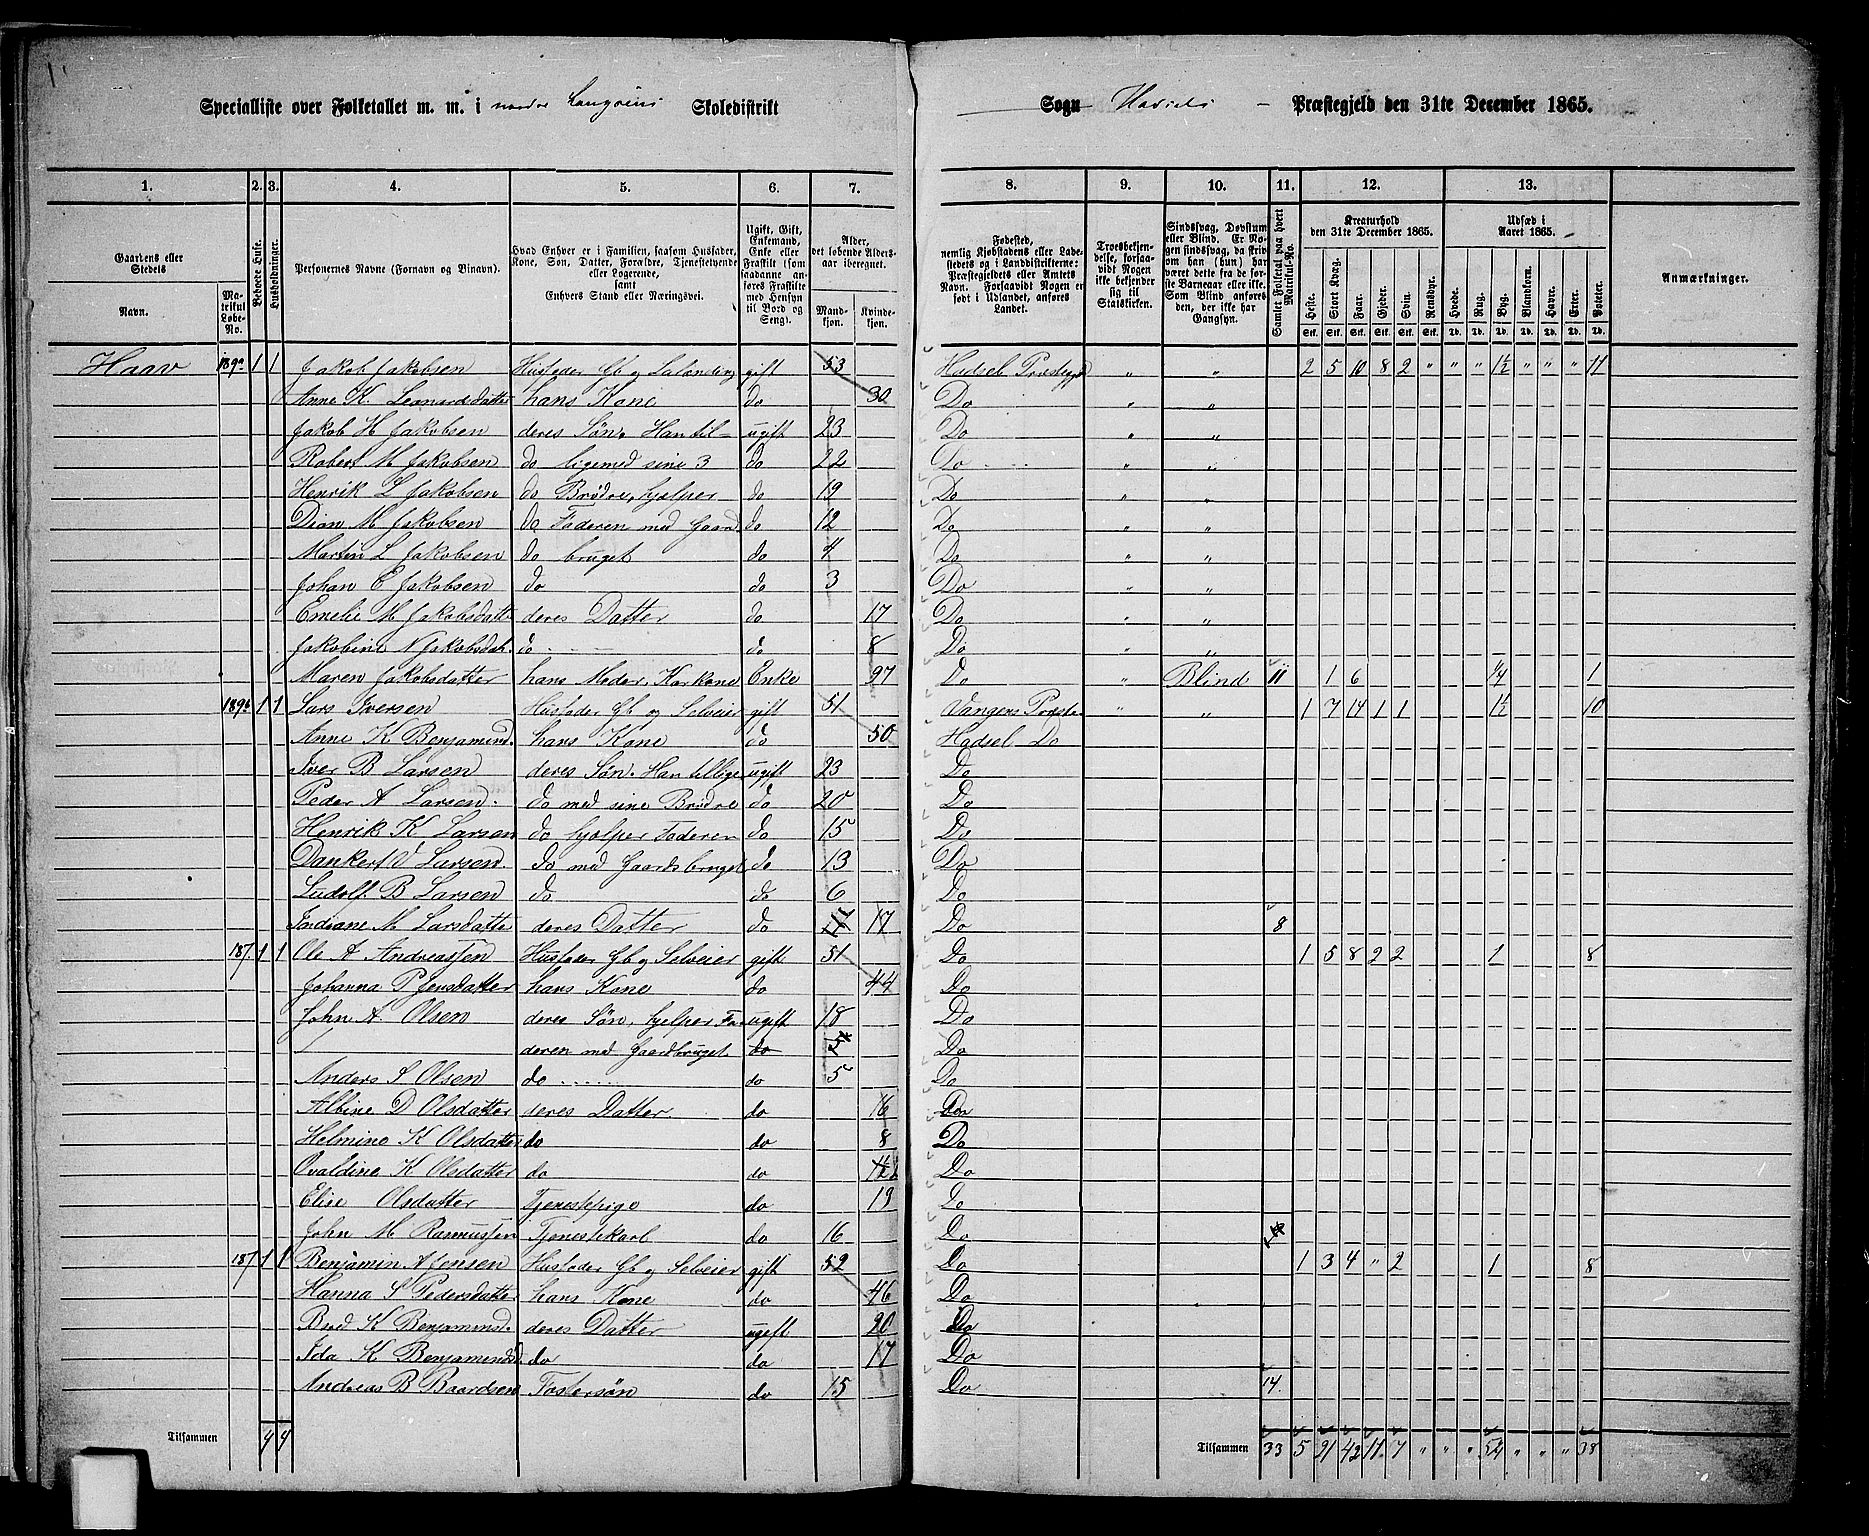 Specialliste over Folketallet m. m. i nordre Langøens Skoledistrikt
Sogn Hadsels Præstegjeld den 31te December 1865.
1. 2. 3. 4. 5. 6. 7. 8. 9. 10. 11. 12. 13.
Gaardens eller Stedets Navn. Matrikul Løbe-No. Beboede Huse. Husholdninger. Personernes Navne (Fornavn og Binavn). Hvad Enhver er i Familien, saasom Husfader, Kone, Søn, Datter, Forældre, Tjenestetyende eller Logerende, samt Enhvers Stand eller Næringsvei. Ugift, Gift, Enkemand, Enke eller Fraskilt Alder, det løbende Alders-aar iberegnet. Mandkjøn. Kvindekjøn.
Fødested, nemlig Kjøbstadens eller Ladestedets og i Landdistrikterne: Præstegjeldets eller Amtets Navn. Forsaavidt Nogen er født i Udlandet, anføres Landet. Troesbekjendelse, forsaavidt Nogen ikke bekjender sig til Statskirken. Sindssvag, Døvstum eller Blind. Samlet Folketal paa hvert Matrikul-No. Kreaturhold den 31te December 1865. Udsæd i Aaret 1865. Anmærkninger.
Heste. Stort Kvæg. Faar. Gjeder. Svin. Rensdyr. Hvede. Rug. Byg. Blandkorn. Havre. Erter. Poteter.
Haav 189a 1 1 Jakob Jakobsen Husfader Gb og gift 53 Hadsel " " 2 5 10 8 2 " " " 1½ " " " 11
Anne K. Leonardsdatter hans Kone do 30 Do " "
Jakob H Jakobsen deres Søn. Han til- ugift 23 Do " "
Robert M Jakobsen do ligemed sine 3 do 22 Do " "
Henrik L Jakobsen do Brødre, hjælper do 19 Do " "
M Jakobsen do Faderen med Gaard do 12 Do " "
Martin L Jakobsen do bruget do 4 Do " "
Johan E Jakobsen do do 3 Do " "
Emelie M Jakobsdatt deres Datter do 17 Do " "
Jakobine N Jakobsdatt do do 8 Do " "
Maren Jakobsdatter hans Moder, Karkone Enke 97 Do " Blind 11 1 6 ¼ 1
189b 1 1 Lars Iversen Husfader Gb og Selveier gift 51 Vangens Præste " " 1 7 14 1 1 1½ 10
Anne K Benjamind. hans Kone do 50 Hadsel Do
Iver B Larsen deres Søn. Han tillige ugift 23 Do
Peder A Larsen. do med sine Brødre do 20 Do
Henrik K Larsen do hjælper Faderen do 15 Do
Dankert Larsen. do med Gaardsbruget do 13 Do
Ludolf B Larsen do do 6 Do
M Larsdatter deres Datter do 17 Do 8
187. 1 1 Ole A Andreassen Husfader Gb og Selveier gift 51 Do 1 5 8 2 2 1 8
Johanna P Jensdatter hans Kone do 44 Do
John A. Olsen deres Søn, hjelper Fa- ugift 18 Do
deren med Gaardbruget do Do
Anders S Olsen do do 5 Do
Albine D Olsdatter deres Datter do 16 Do
Helmine K Olsdatter do do 8 Do
Ovaldine K Olsdatter do do Do
Elise Olsdatter Tjenestepige do 19 Do
John M Rasmussen Tjenestekarl do 16 Do
187 1 1 Benjamin Husfader Gb og Selveier gift 52 Do 1 3 4 " 2 1 8
Hanna S Pedersdatter hans Kone do 46 Do
K Benjaminsd. deres Datter ugift 20 Do
Ida K Benjaminsd do do 17 Do
Andreas B Baardsen Fostersøn do 15 Do 14.
Tilsammen 4 4 Tilsammen 33 5 21 42 11 7 " " " " " " 38